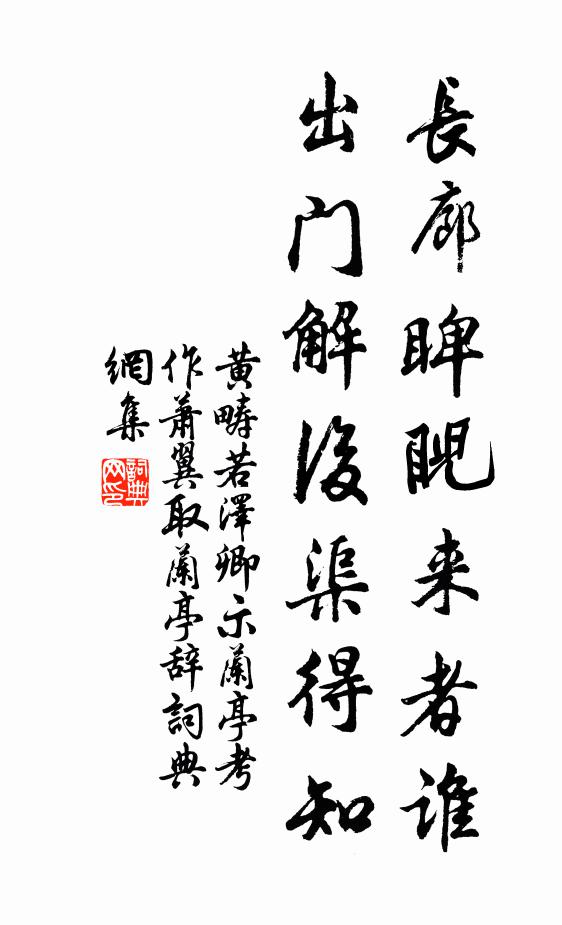 長廊睥睨来者谁
出门解後渠得知
黄疇若澤卿示蘭亭考
作萧翼取蘭亭辞詞典
網集
詞典
网印